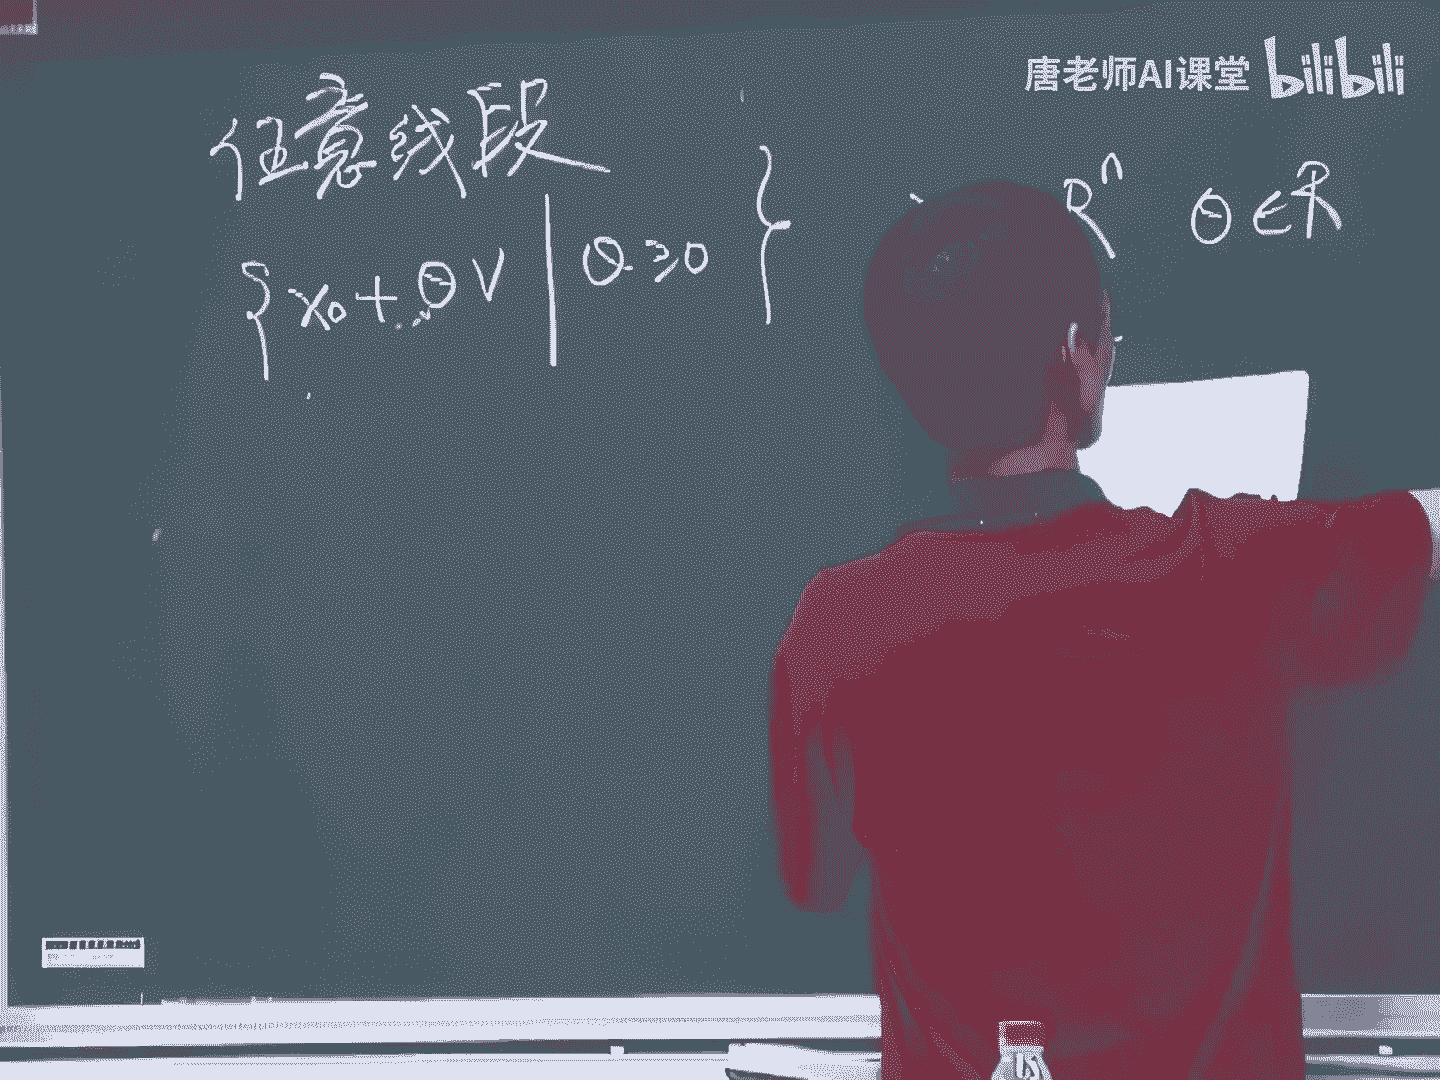 唐老师AI课堂 bilibili
任意线段
{x₀+θv | θ≥0} Rⁿ θ∈R